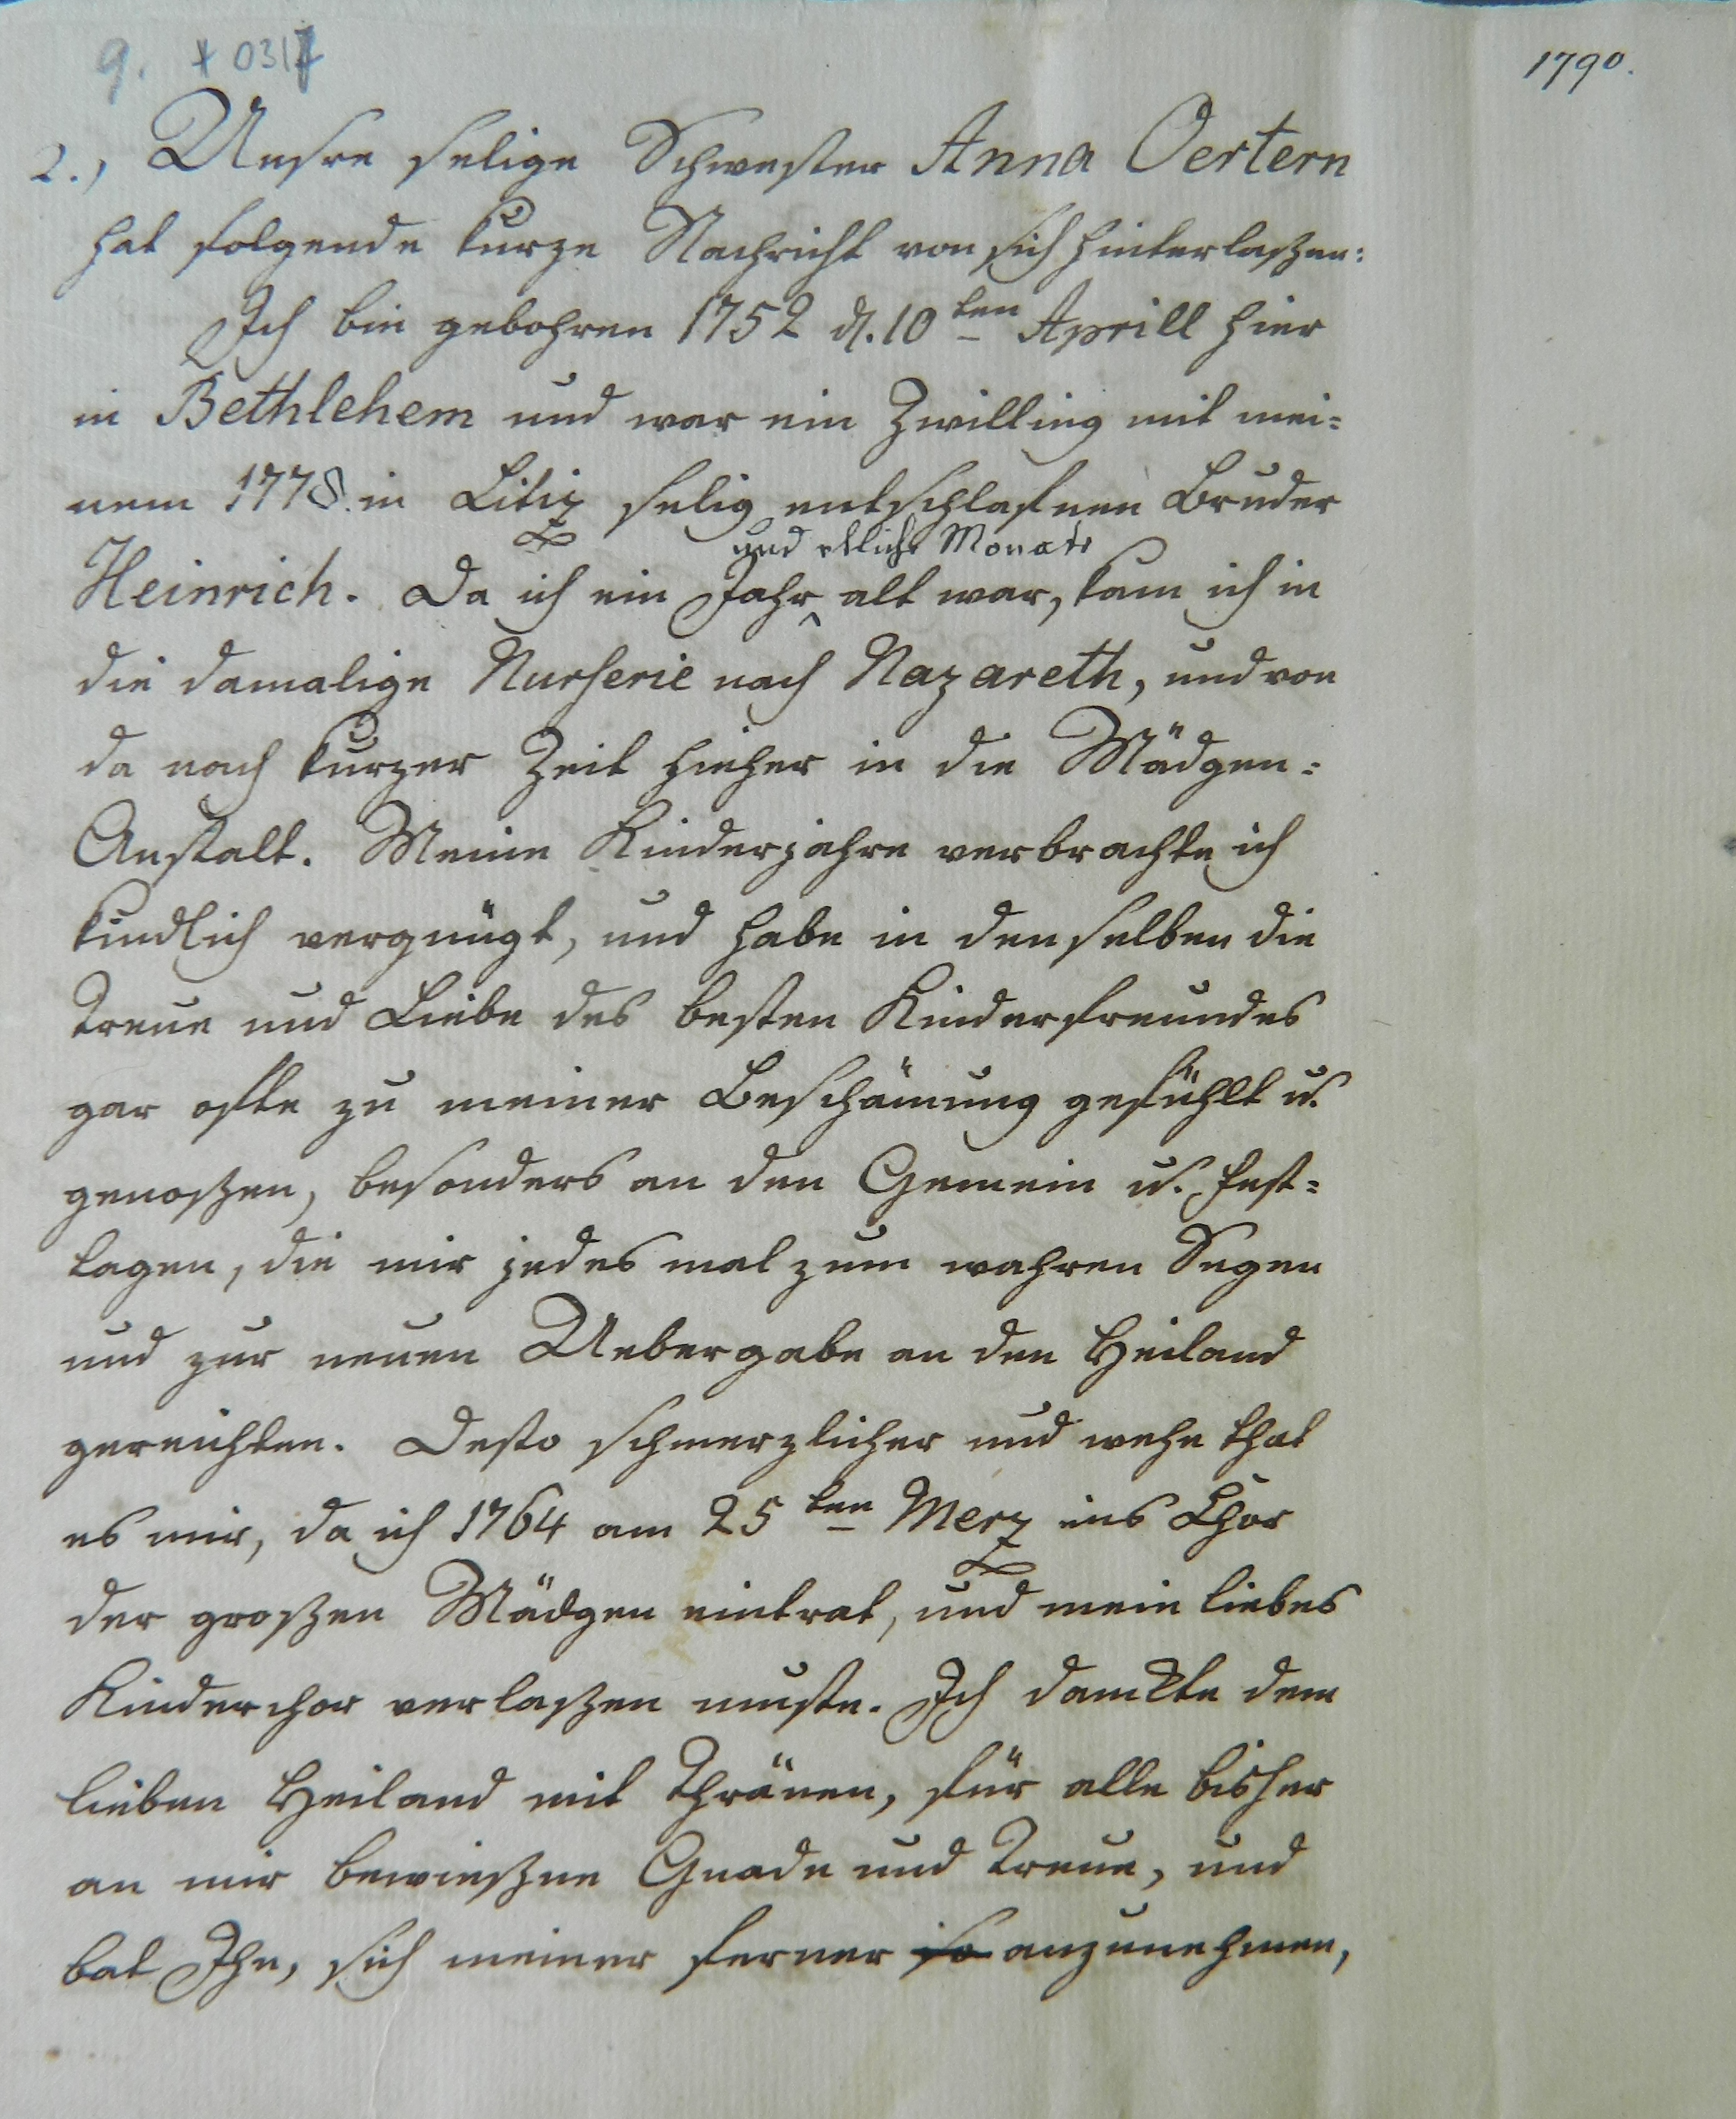 9. * 0317
1790.
2., Unsre selige Schwester Anna Oertern
hat folgende kurze Nachricht von sich hinterlaßen:
Ich bin gebohren 1752 d. 10ten Aprill hier
in Bethlehem und war ein Zwilling mit mei=
nem 1778. in Litiz selig entschlafnen Bruder
und etliche Monate
Heinrich. Da ich ein Jahr alt war, kam ich in
die damalige Nurserie nach Nazareth, und von
da nach kurzer Zeit hieher in die Mädgen=
Anstalt. Meine Kinderjahre verbrachte ich
kindlich vergnügt, und habe in denselben die
Treue und Liebe des besten Kinderfreundes
gar ofte zu meiner Beschämung gefühlt u.
genoßen, besonders an den Gemein u. Fest=
tagen, die mir jedes mal zum wahren Segen
und zur neuen Uebergabe an den Heiland
gereichten. Desto schmerzlicher und wehe that
es mir, da ich 1764 am 25ten Merz ins Chor
der großen Mädgen eintrat, und mein liebes
Kinderchor verlaßen muste. Ich danckte dem
lieben Heiland mit Thränen, für alle bisher
an mir bewießne Gnade und Treue, und
bat Ihn, sich meiner ferner so anzunehmen,